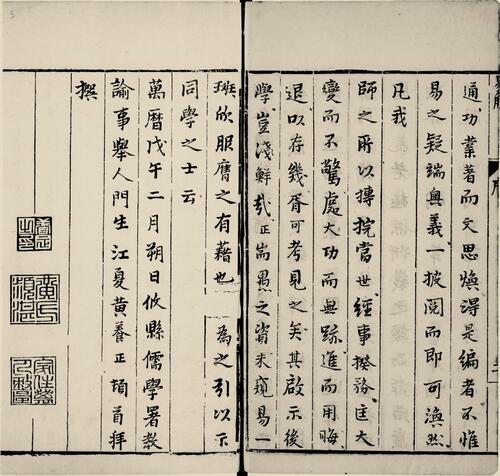 通功業著而文思煥得是編者不惟
易之疑端奧義一披閱而即可渙然
凡我
師之所以摶捖當世經事揆務匡大
變而不驚處大功而無跡進而用晦
退以存幾胥可考見之矣其啟示後
學豈淺鮮哉正耑愚之資未窺易一
班欣服膺之有藉也 為之引以示
同學之士云
萬曆戊午二月朔日攸縣儒學署教
諭事舉人門生江夏黃養正頓首拜
撰